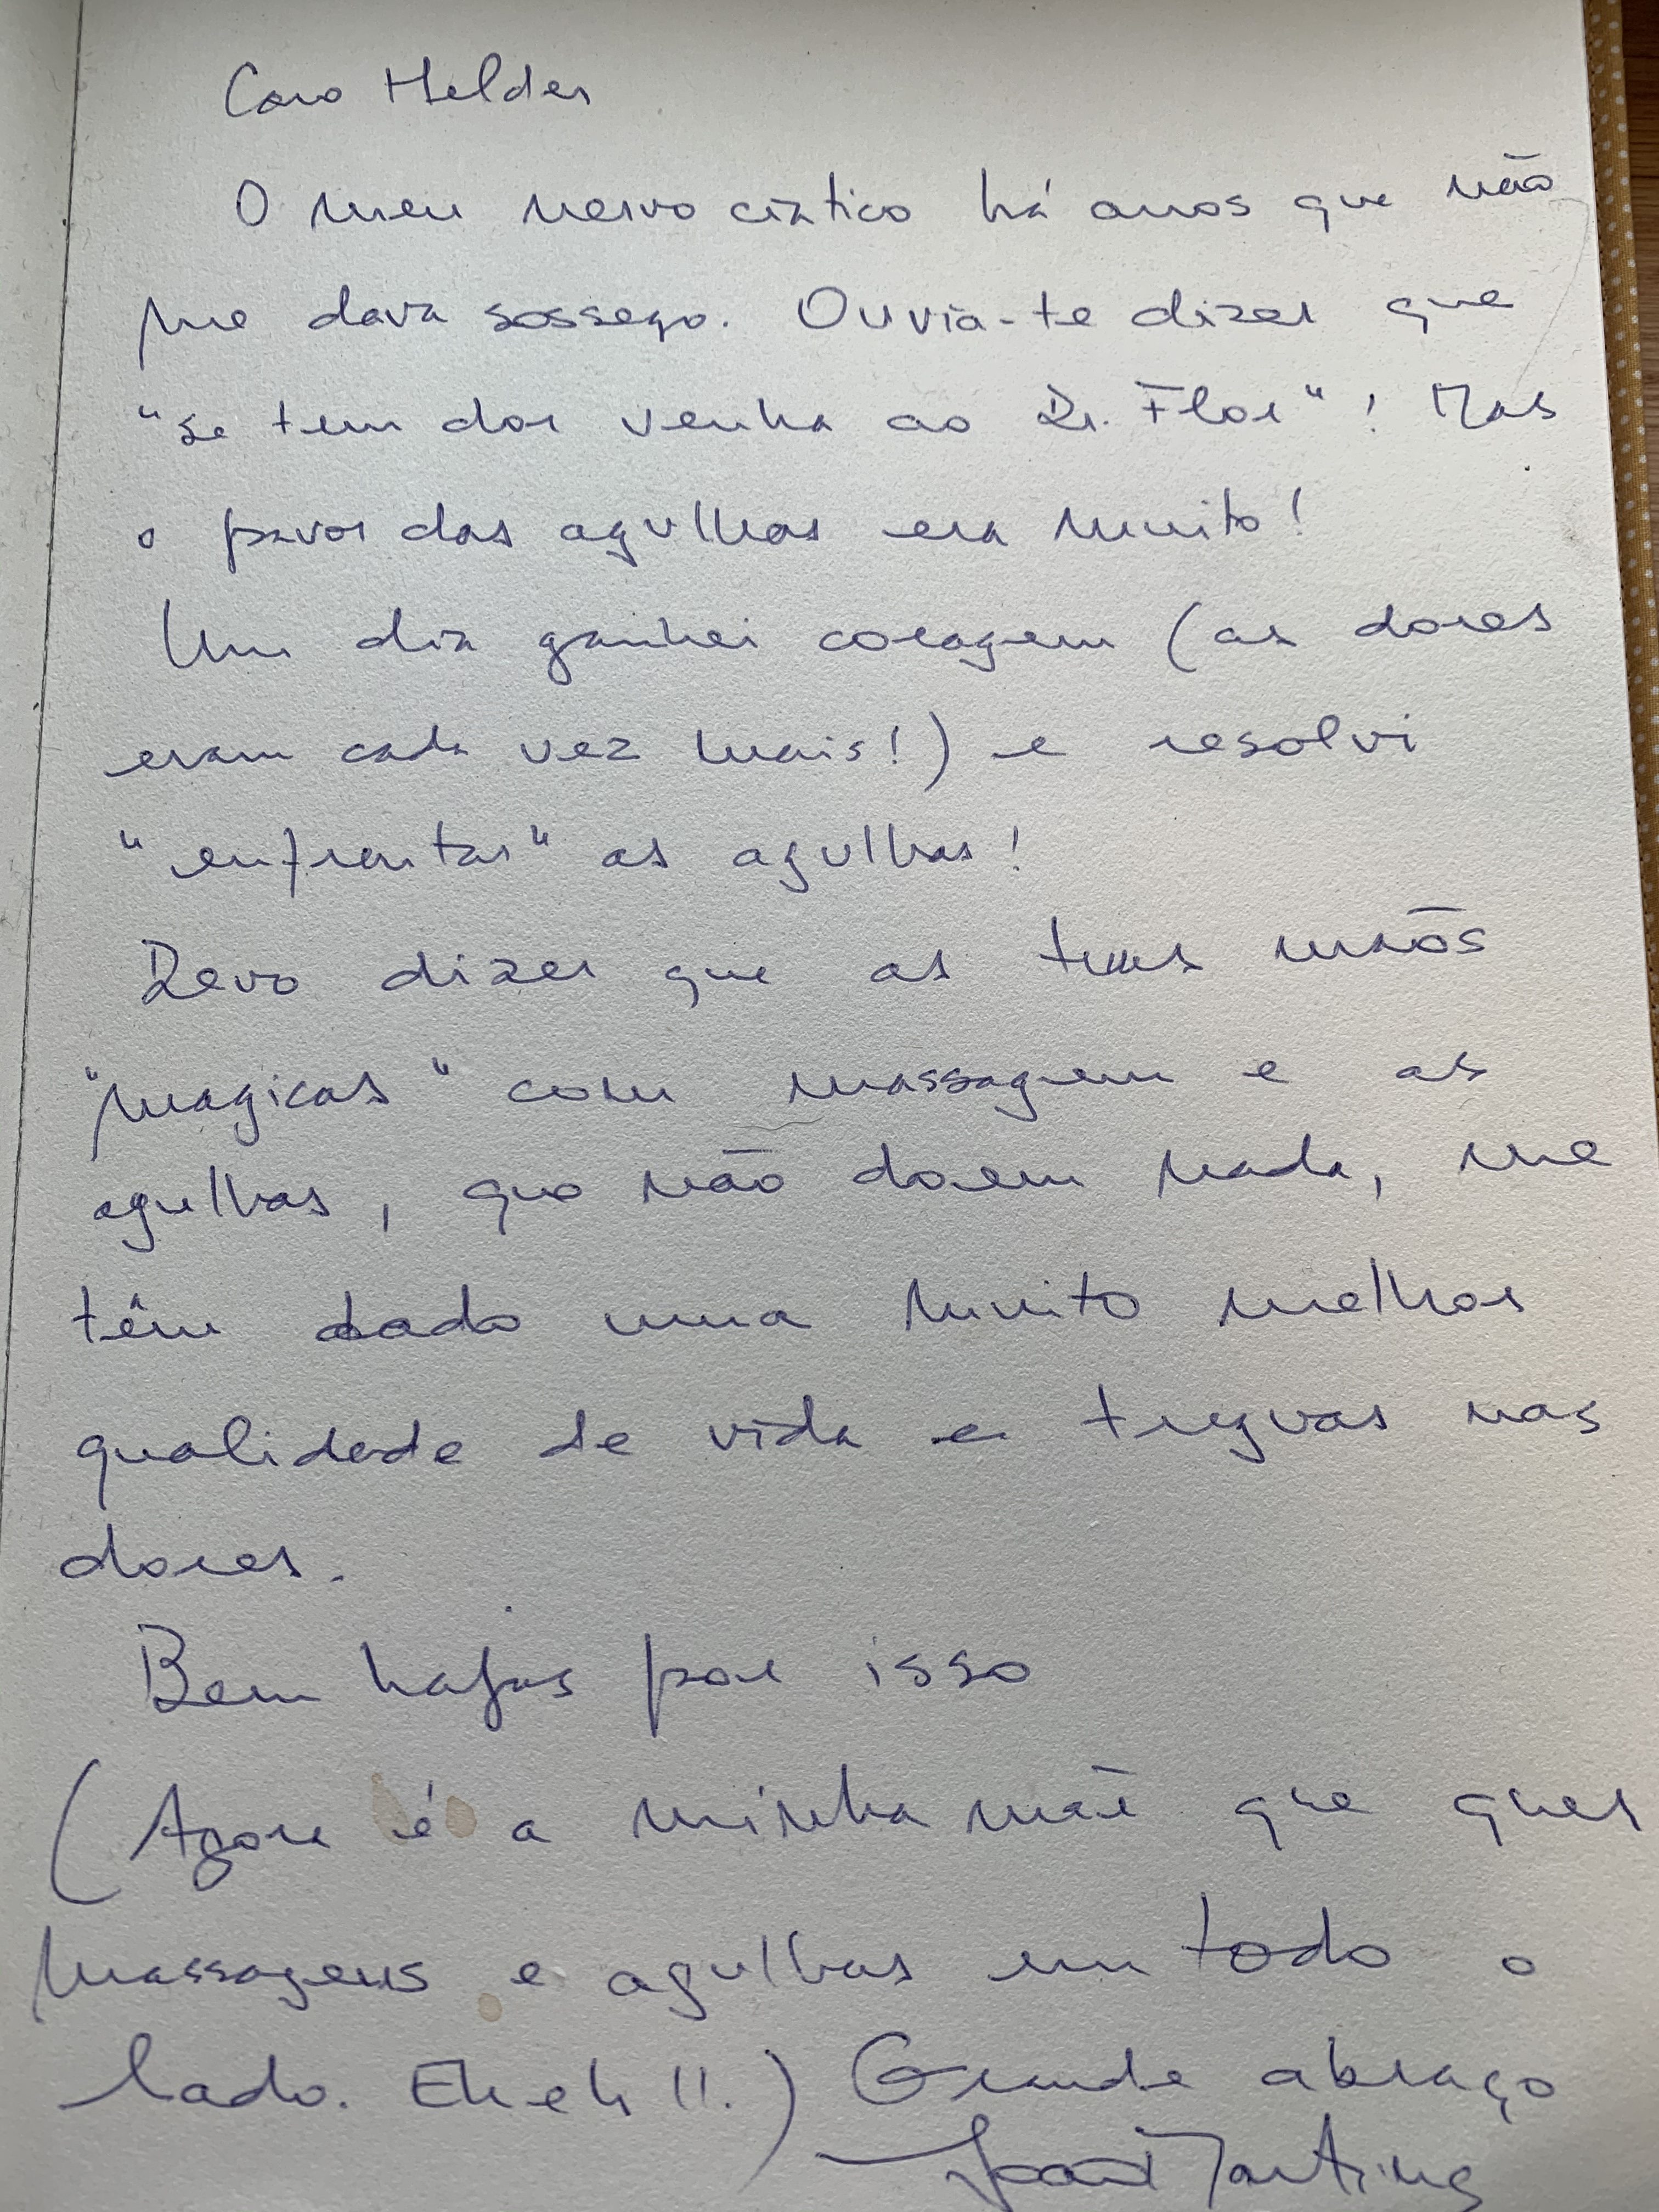 Caro Helder
O meu nervo ciatico há anos que não
me dava sossego. Ouvia-te dizer que
"se tem dor venha ao Dr. Flor"! Mas
o pavor das agulhas era muito!
Um dia ganhei coragem (as dores
eram cada vez mais!) e resolvi
"enfrentar" as agulhas!
Devo dizer que as tuas mãos
"magicas" com massagem e as
agulhas, que não doem nada, me
têm dado uma muito melhor
qualidade de vida e treguas nas
dores.
Bem hajas por isso
(Agora é a minha mãe que quer
massagens e agulhas em todo o
lado. Eh eh!!.) Grande abraço
João Martins